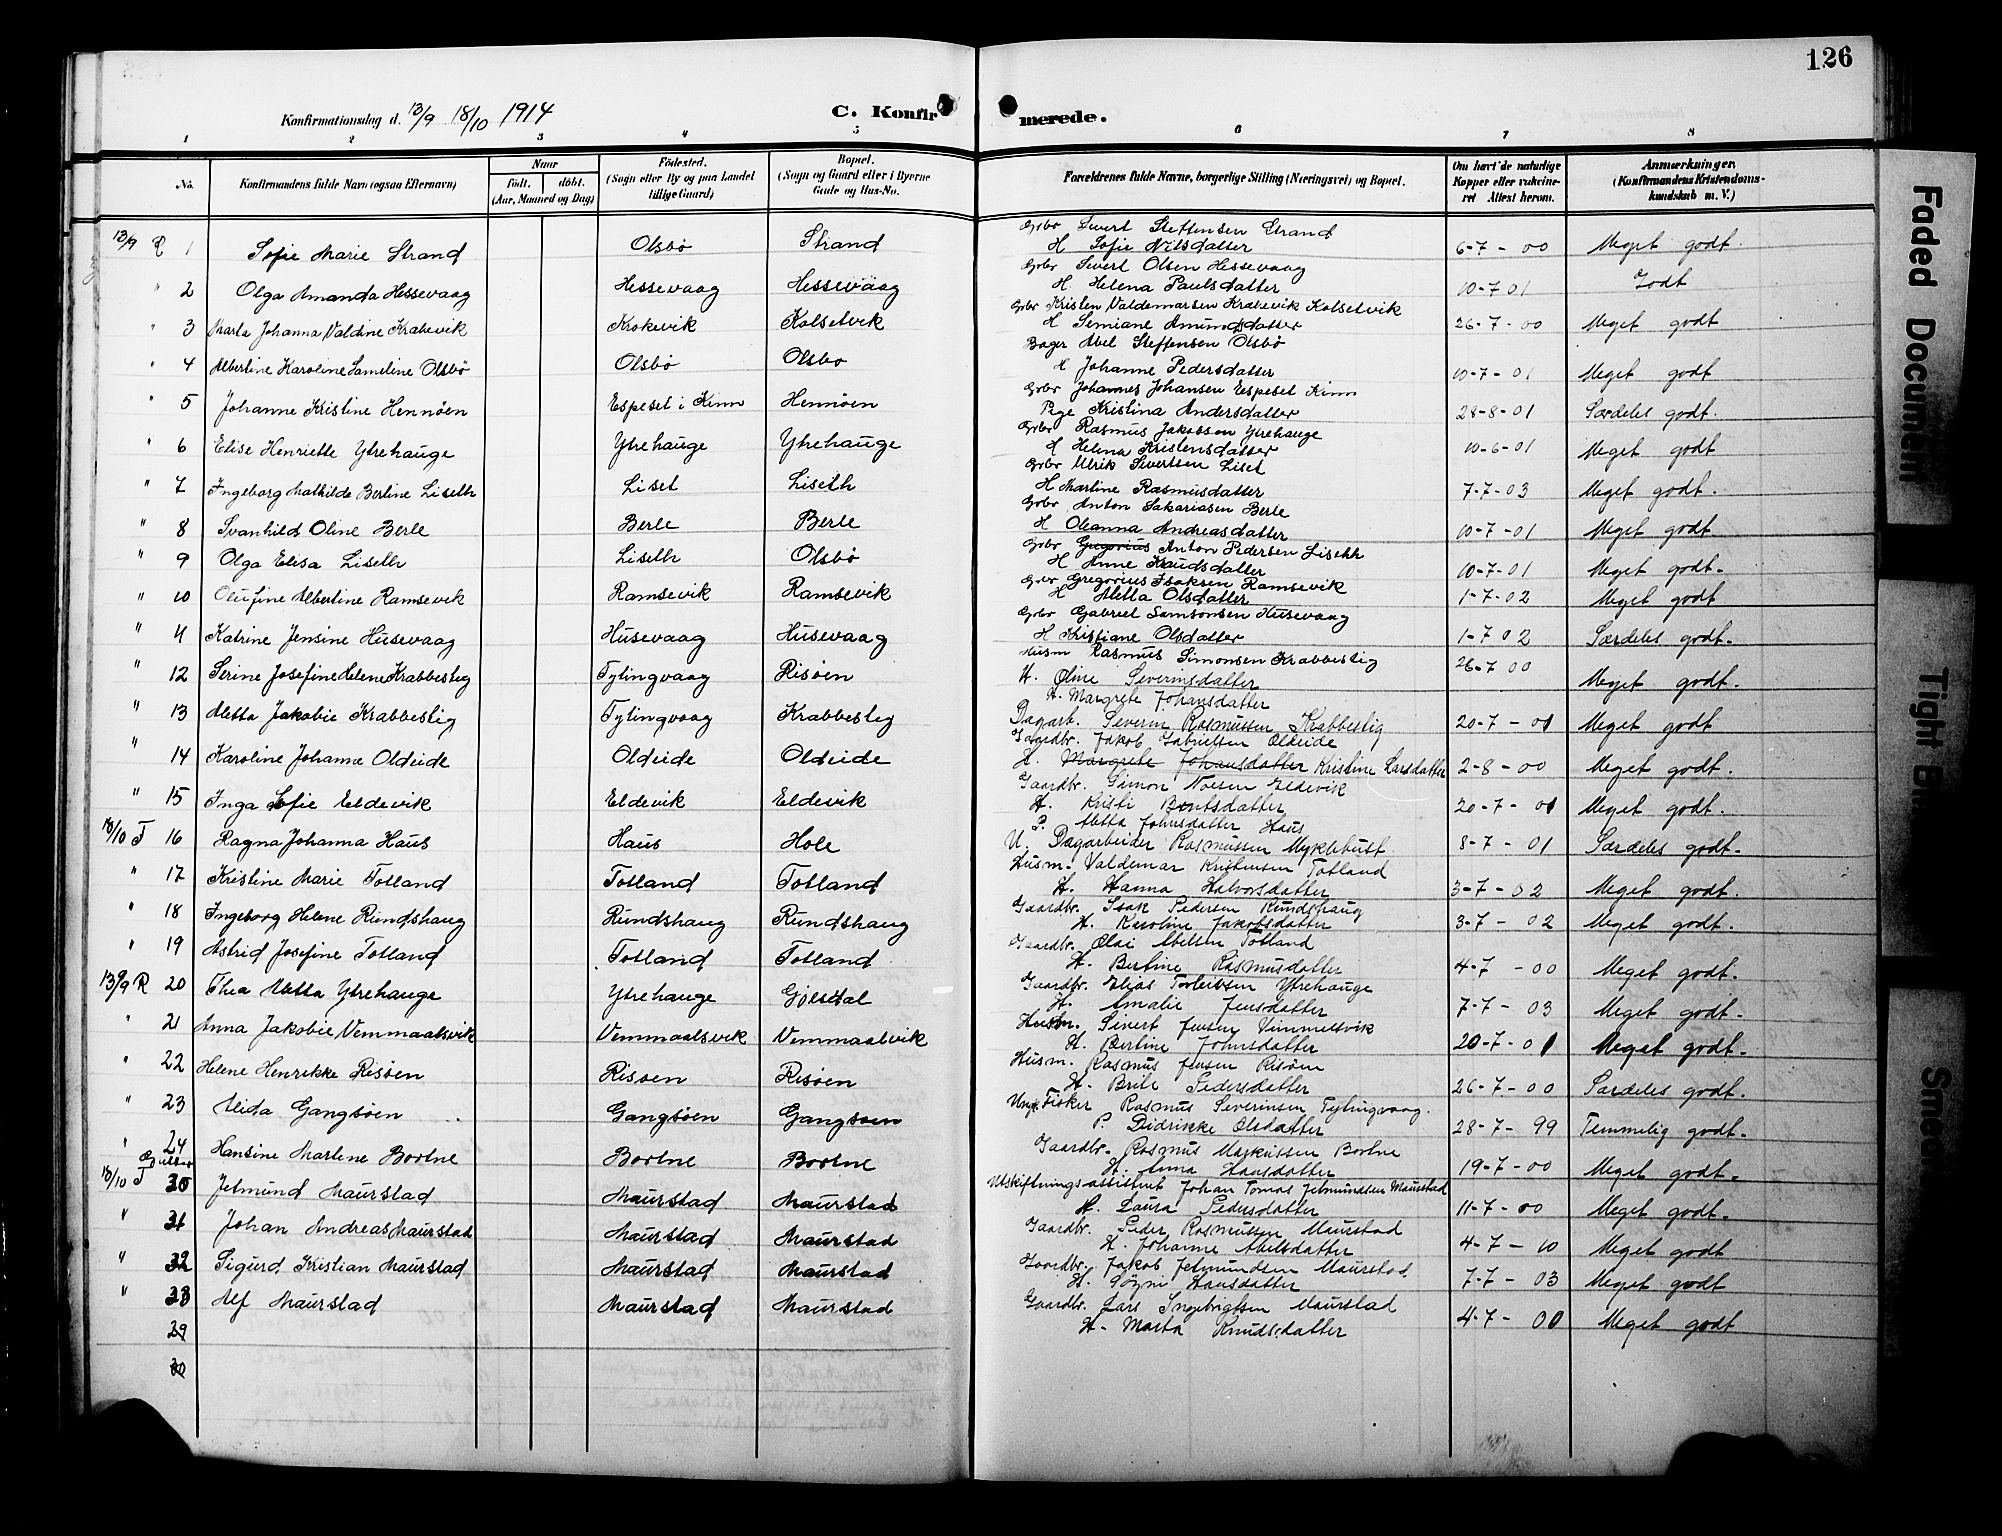 126
Konfirmationsdag d. 13/9 18/10 1914
C. Konfirmerede.
1 2 3 4 5 6 7 8
No. Konfirmandens fulde Navn (ogsaa Efternavn) Naar født. døbt. (Aar, Maaned og Dag) Fødested. (Sogn eller By og paa Landet tillige Gaard) Bopæl. (Sogn og Gaard eller i Byerne Gade og Hus-No. Forældrenes fulde Navne, borgerlige Stilling (Næringsvei) og Bopæl. Om havt de naturlige Kopper eller vakcineret Attest herom. Anmærkninger (Konfirmandens Kristendomskundskab m. V.)
13/9 R 1 Sofie Marie Strand Olsbø Strand Grbr Sivert Steffensen Strand
H Sofie Nilsdatter 6-7-00 Meget godt.
" 2 Olga Amanda Hessevaag Hessevaag Hessevaag Grbr Sivert Olsen Hessevaag
H Helena Paulsdatter 10-7 01 Godt
" 3 Marta Johanna Valdine Krabevik Krokevik Kolsetvik Grbr Kristen Valdemarsen Krabevik Kolsetvik
H Semiane Amundsdatter 26-7-00 Meget godt
" 4 Albertine Karoline Sameline Olsbø Olsbø Olsbo Bager Abel Steffensen Olsbø
H Johanne Pedersdatter 10-7-01 Meget godt
" 5 Johanne Kristine Hennøen Espeset i Kinn Hennøen Grbr Johannes Johansen Espeset Kinn
Pige Kristina Andersdatter 28-8-01 Særdeles godt.
" 6 Elise Henriette Ytrehauge Ytrehauge Ytrehauge Grbr Rasmus Jakobsen Ytrehauge
H Helena Kristensdatter 10-6-01 Meget godt
" 7 Ingeborg Mathilde Berline Liseth Liset Liseth Grbr Ulrik Sivertsen Liset
H Martine Rasmusdatter 7-7-03 Meget godt.
" 8 Svanhild Oline Berle Berle Berle Grbr Anton Sakariasen Berle
H Oleanna Andreasdatter 10-7-01 Meget godt
" 9 Olga Elisa Liseth Liseth Olsbø Grbr Gregorius Anton Pedersen Liseth
H Anne Knudsdatter 10-7-01 Meget godt.
" 10 Olufine Albertine Ramsevik Ramsevik Ramsevik Grbr Gregorius Isaksen Ramsevik
H Aletta Olsdatter 1-7-02 Meget godt
" 11 Katrine Jensine Husevaag Husevaag Husevaag Grbr Gabriel Samsonsen Husevaag
H Kristiane Olsdatter 1-7 02 Særdeles godt.
" 12 Serine Josefine Helene Krabbestig Tytingvaag Risøen Husm Rasmus Simonsen Krabbestig
H. Oline Severinsdatter 26-7 00 Meget godt.
H. Margrete Johansdatter
" 13 Aletta Jakobie Krabbestig Tytingvaag Krabbestig Dagarb. Severin Rasmussen Krabbestig 20-7-01 Meget godt
" 14 Karoline Johanne Oldeide Oldeide Oldeide Gaardbr. Jakob Gabrielsen Oldeide
H. Margrete Johansdatter Kristine Larsdatter 2-8-00 Meget godt.
" 15 Inga Sofie Eldevik Eldevik Eldevik Gaardbr. Simon Noesen Eldevik
H. Kristi Bentsdatter 20-7-01 Meget godt.
18/10 T 16 Ragna Johanna Haus Haus Hole P. Aletta Johnsdatter Haus
U. Dagarbeider Rasmussen Myklebust 8-7-01 Særdeles godt.
" 17 Kristine Marie Totland Totland Totland Husm. Valdemar Kristensen Totland
H. Hanna Halvorsdatter 3-7-02 Meget godt.
" 18 Ingeborg Helene Rundshaug Rundshaug Rundshaug Gaardbr. Isak Pedersen Rundshaug
H. Karoline Jakobsdatter 3-7-02 Meget godt.
" 19 Astrid Josefine Totland Totland Totland Gaardbr. Olai Abelsen Totland
H. Bertine Rasmusdatter 4-7-00 Meget godt.
13/9 R 20 Thea Aletta Ytrehauge Ytrehauge Gjesdal Gaardbr. Elias Torleivsen Ytrehauge
H. Amalie Jensdatter 7-7-03 Meget godt.
" 21 Anna Jakobie Vemmaalsvik Vemmaalsvik Vemmaalvik Husm. Sivert Jensen Vimmelsvik
H. Bertine Johnsdatter 20-7-01 Meget godt.
" 22 Helene Henrikke Risøen Risøen Risøen Husm. Rasmus Jensen Risøen
H. Brite Pedersdatter 26-7-00 Særdeles godt.
" 23 Alida Gangsøen Gangsøen Gangsøen Ungk. Fisker Rasmus Severinsen Tytingvaag.
P. Didrikke Olsdatter 28-7-99 Temmelig godt.
" 24 Hansine Marlene Bortne Bortne Bortne Gaardbr. Rasmus Markussen Bortne
H. Anna Hansdatter 19-7-00 Meget godt.
18/10 T 30 Jetmund Maurstad Maurstad Maurstad Utskiftningsassistent Johan Tomas Jetmundsen Maurstad
H. Laura Pedersdatter 11-7-00 Meget godt.
" 31 Johan Andreas Maurstad Maurstad Maurstad Gaardbr. Peder Rasmussen Maurstad
H. Johanne Abelsdatter 4-7-10 Meget godt
" 32 Sigurd Kristian Maurstad Maurstad Maurstad Gaardbr. Jakob Jetmundsen Maurstad
H. Søgni Hansdatter 7-7-03 Meget godt
" 33 Alf Maurstad Maurstad Maurstad Gaardbr. Lars Ingebrigtsen Maurstad
H. Marta Knudsdatter 4-7-01 Meget godt
29
30
Faded Document
Tight